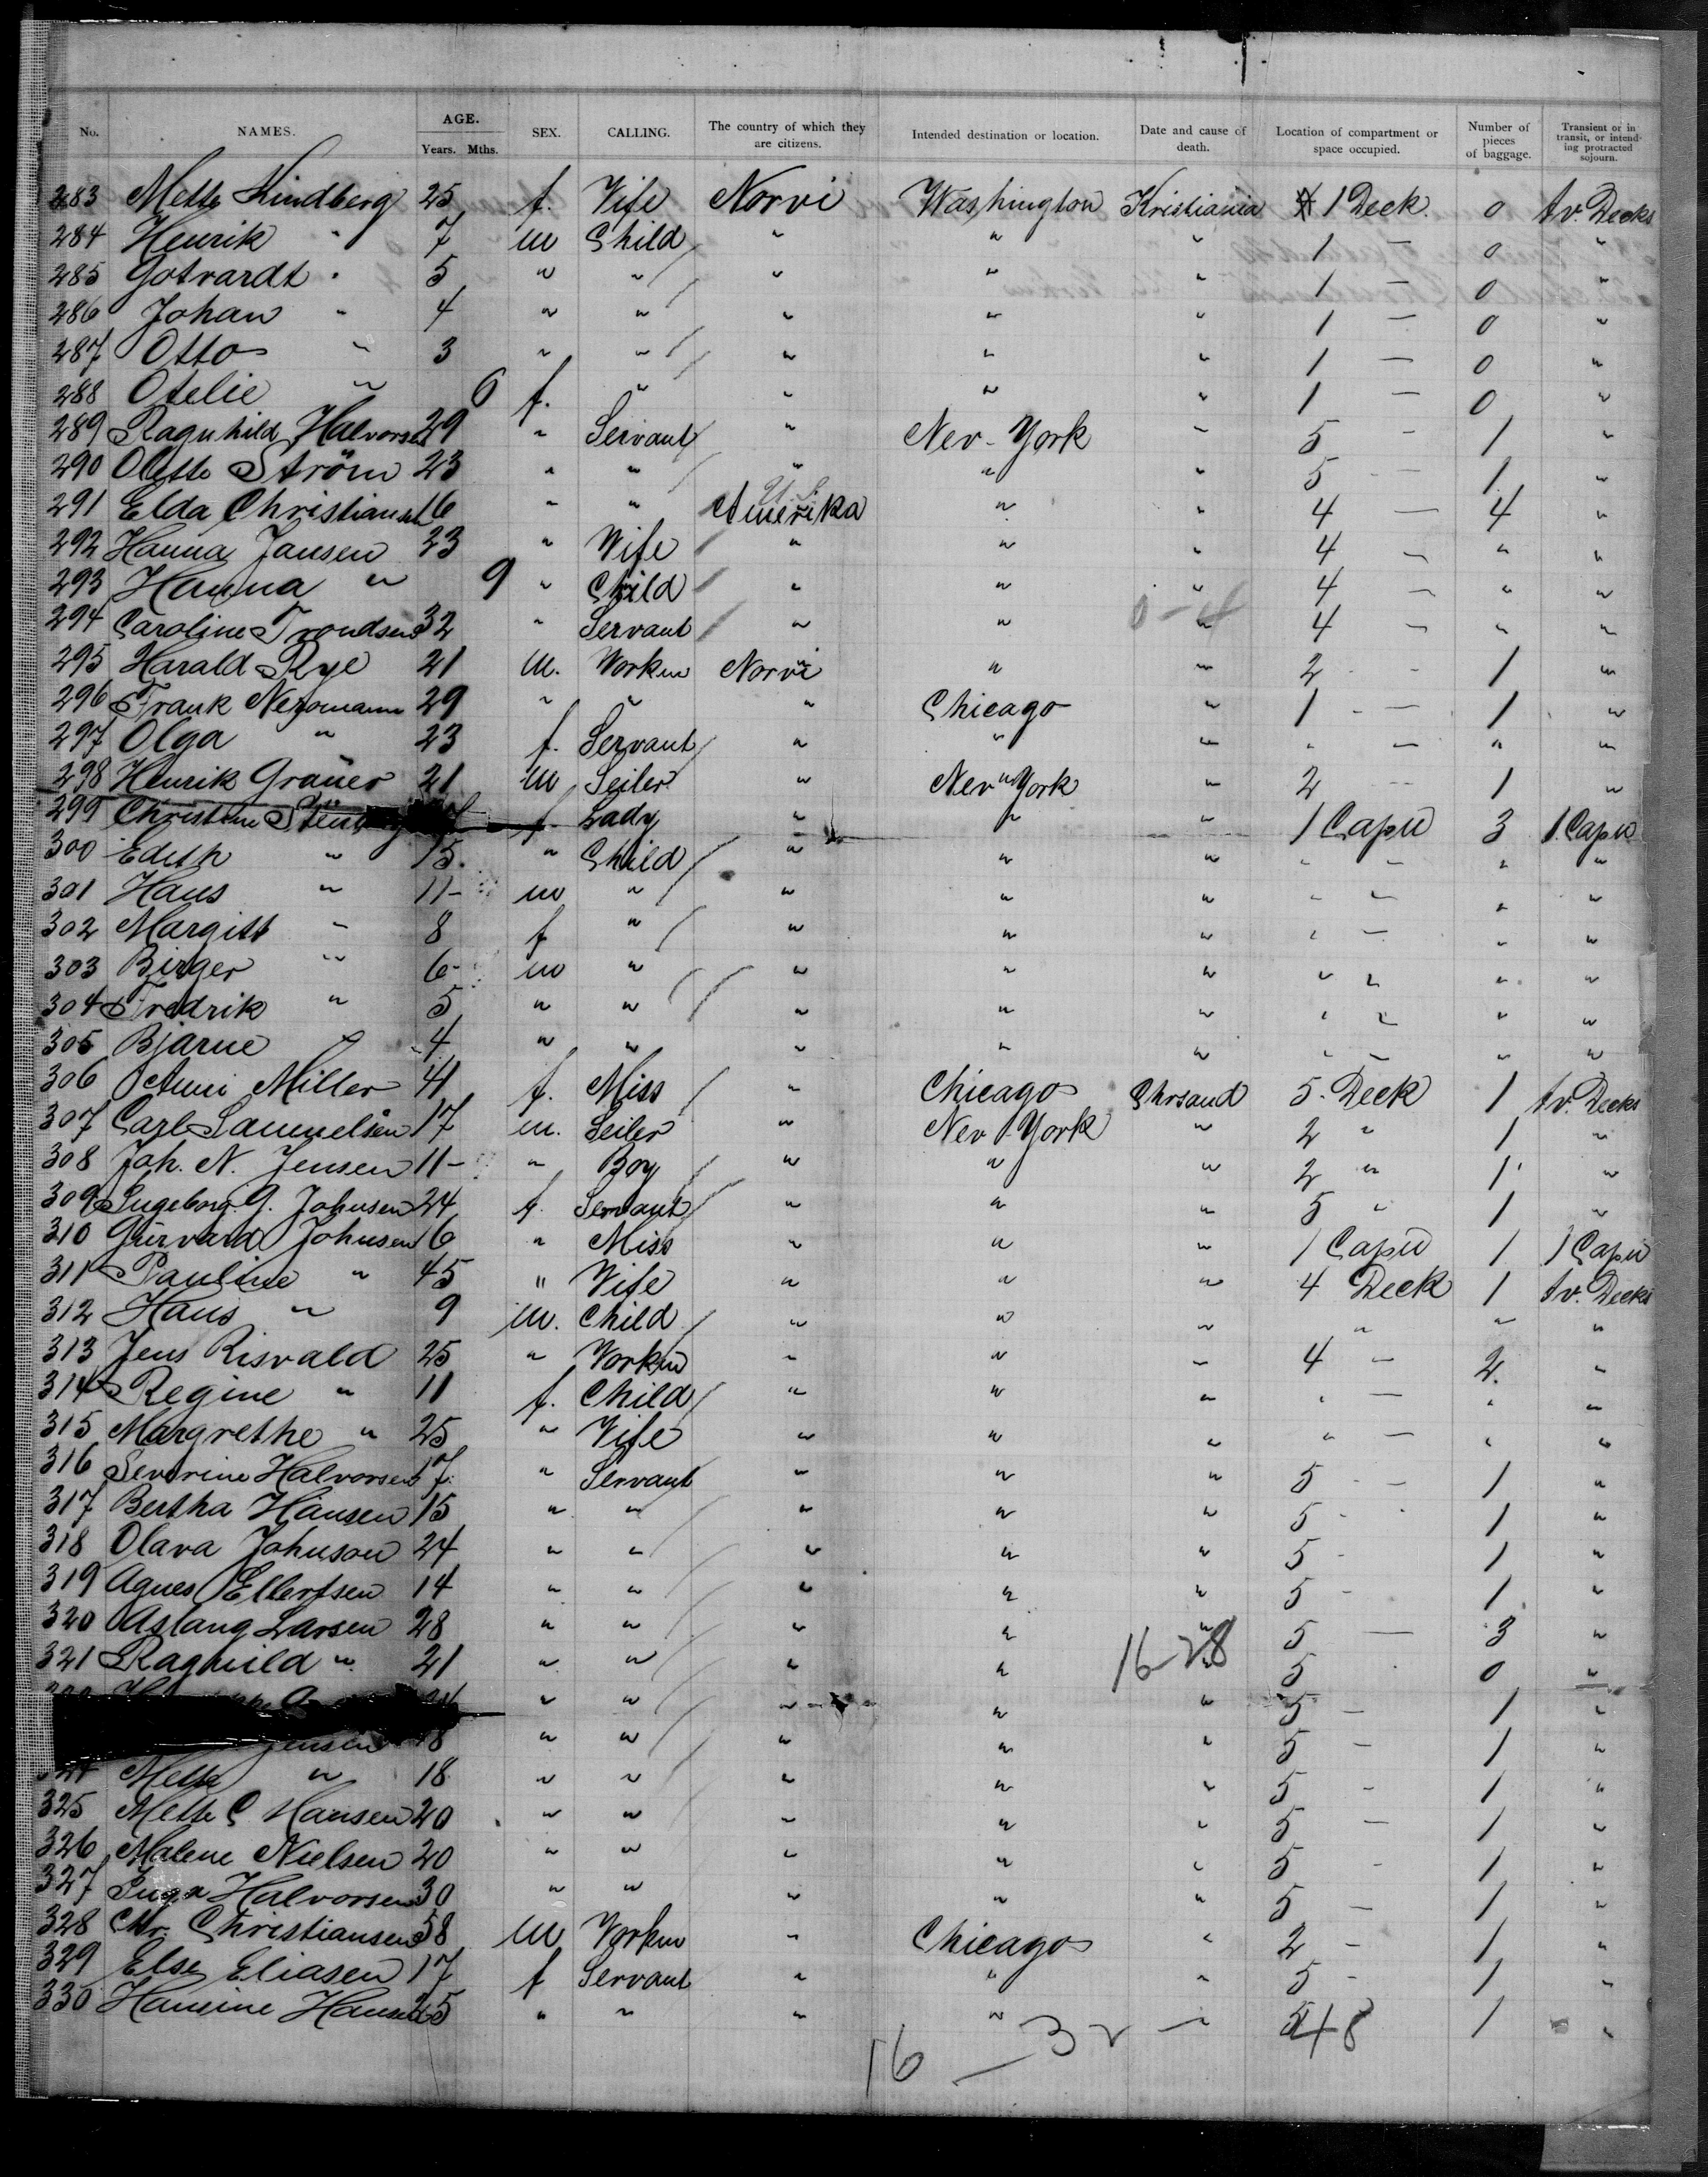 No. NAMES. AGE. Years. Mths. SEX. CALLING. The country of which they are citizens. Intended destination or location. Date and cause of death. Location of compartment or space occupied. Number of pieces of baggage. Transient or in transit, or intending protracted sojourn.
283 Mette Lindberg 25 f. Wife Norvi Washington Kristiania 1 Deck. 0 tv. Decks
284 Henrik " 7 m Child " " " 1 — 0 "
285 Gotvardt " 5 " " " " " 1 — 0 "
286 Johan " 4 " " " " " 1 — 0 "
287 Otto " 3 " " " " " 1 — 0 "
288 Otelie " 6 f. " " " " 1 — 0 "
289 Ragnhild Halvorsen 29 " Servant " Nev-York " 5 - 1 "
290 Olette Ström 23 " " " " " 5 - 1 "
291 Elda Christiansen 16 " " U.S. Amerika " " 4 — 4 "
292 Hanna Jansen 23 " Wife " " " 4 - " "
293 Hanna " 9 " Child " " " 4 - " "
0-4
294 Caroline Trondsen 32 " Servant " " " 4 - " "
295 Harald Rye 21 m. Workm Norvi " " 2 - 1 "
296 Frank 29 " " " Chicago " 1 - 1 "
297 Olga " 23 f. Servant " " " " - " "
298 Henrik Graüer 21 m Seiler " Nev York " 2 - 1 "
299 Christine f. Lady " " " 1 Capü 3 1 Capü
300 Edith " 15. " Child " " " " - " "
301 Hans " 11- m " " " " " - " "
302 Margitt " 8 f " " " " " - " "
303 Birger " 6- m " " " " " " " "
304 Fredrik " 5 " " " " " " " " "
305 Bjarne " 4 " " " " " " - " "
306 Anni Miller 41 f. Miss " Chicago Chrsand 5. Deck 1 tv. Decks
307 Carl Samuelsen 17 m. Seiler " Nev-York " 2 " 1 "
308 Joh. N. Jensen 11- " Boy " " " 2 " 1 "
309 Ingeborg G. Johnsen 24 f. Servant " " " 5 " 1 "
310 Gürvard Johnsen 16 " Miss " " " 1 Capü 1 1 Capü
311 Pauline " 45 " Wife " " " 4 Deck 1 tv. Decks
312 Hans " 9 m. Child " " " " " "
313 Jens Risvald 25 " Workm " " " 4 - 2. "
314 Regine " 11 f. Child " " " " — " "
315 Margrethe " 25 " Wife " " " " — " "
316 Severine Halvorsen 17. " Servant " " " 5 - 1 "
317 Bertha Hansen 15 " " " " " 5 - 1 "
318 Olava Johnson 24 " " " " " 5 - 1 "
319 Agnes Ellertsen 14 " " " " " 5 - 1 "
320 Aslaug Larsen 28 " " " " " 5 — 3 "
16-28
321 Ragnild " 21 " " " " " 5 0 "
" " " " " 5 - 1 "
Jensen 18 " " " " " 5 - 1 "
Mette " 18 " " " " " 5 - 1 "
325 Mette C Hansen 20 " " " " " 5 - 1 "
326 Malene Nielsen 20 " " " " " 5 - 1 "
327 Inga Halvorsen 30 " " " " " 5 - 1 "
328 Chr. Christiansen 58 m Workm " Chicago " 2 - 1 "
329 Else Eliasen 17 f Servant " " " 5 - 1 "
330 Hansine Hansen 25 " " " " " 5 1 "
16 — 32 — 48